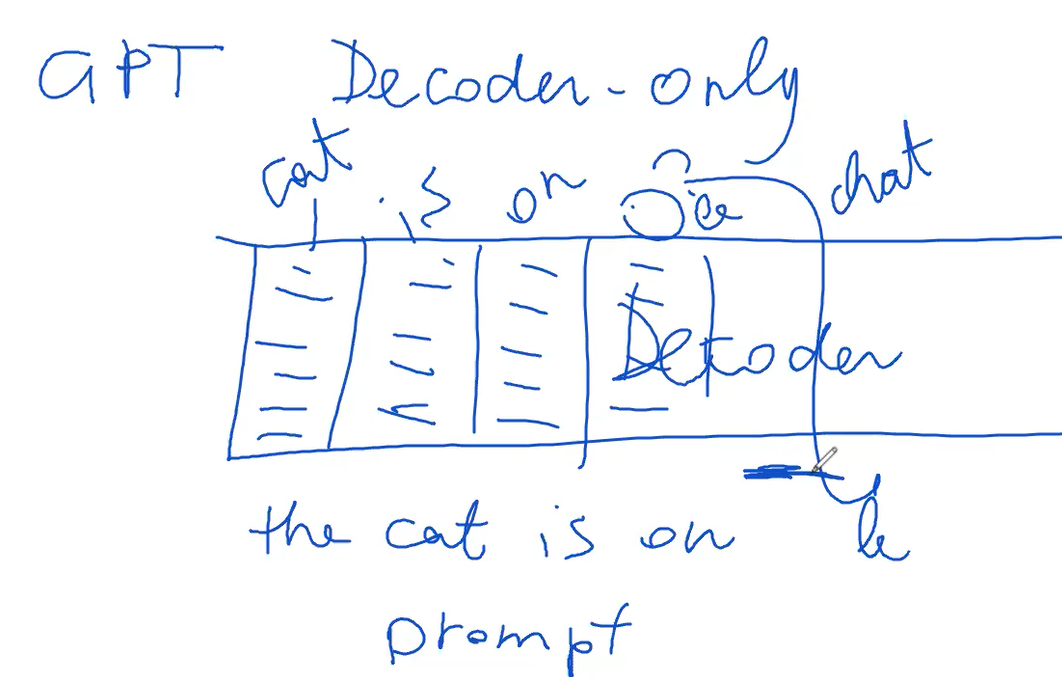 GPT Decoder-only
cat is on chat
Decoder
the cat is on le
prompt